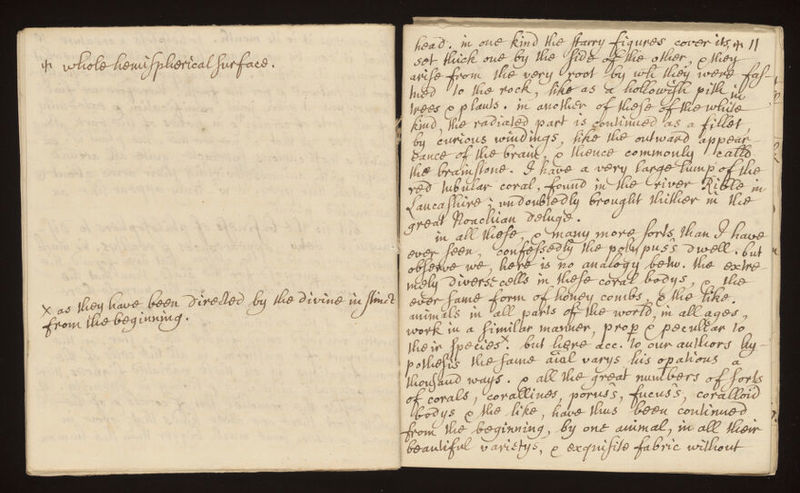 ⋔ whole hemiſpherical ſurface.
x as they have been directed by the divine inſtinct
from the beginning.
head. in one kind the ſtarry figures cover its ⋔ 11
set thick one by the ſide of the other, & they
ariſe from the very root by wch they were faſ-
tned to the rock, like as a hollowiſh pith in
trees & plants. in another of theſe of the white
kind, the radiated part is continued as a fillet
by curious windings, like the outward appear-
eance of the brain, & thence commonly calld
the brainſtone. I have a very large lump of the
red tubular coral, found in the river Rible in
Lancaſhire; undoubtedly brought thither in the
great Noachian deluge.
in all theſe, & many more ſorts than I have
ever ſeen, confeſſedly the polypus's dwell. but
obſerve we, here is no analogy betw. the extre
mely diverse cells in theſe coral bodys, & the
ever ſame form of honey combs, & the like.
animals in all parts of the world, in all ages,
work in a ſimilar manner, prop & peculiar to
their ſpecies x. but here acc. to our authors hy-
potheſis the ſame aial varys his opations a
thouſand ways. & all the great numbers of ſorts
of corals, corallines, porus's, fucus's, coralloid
bodys & the like, have thus been continued
from the beginning, by one animal, in all their
beautiful varietys, & exquiſite fabric without